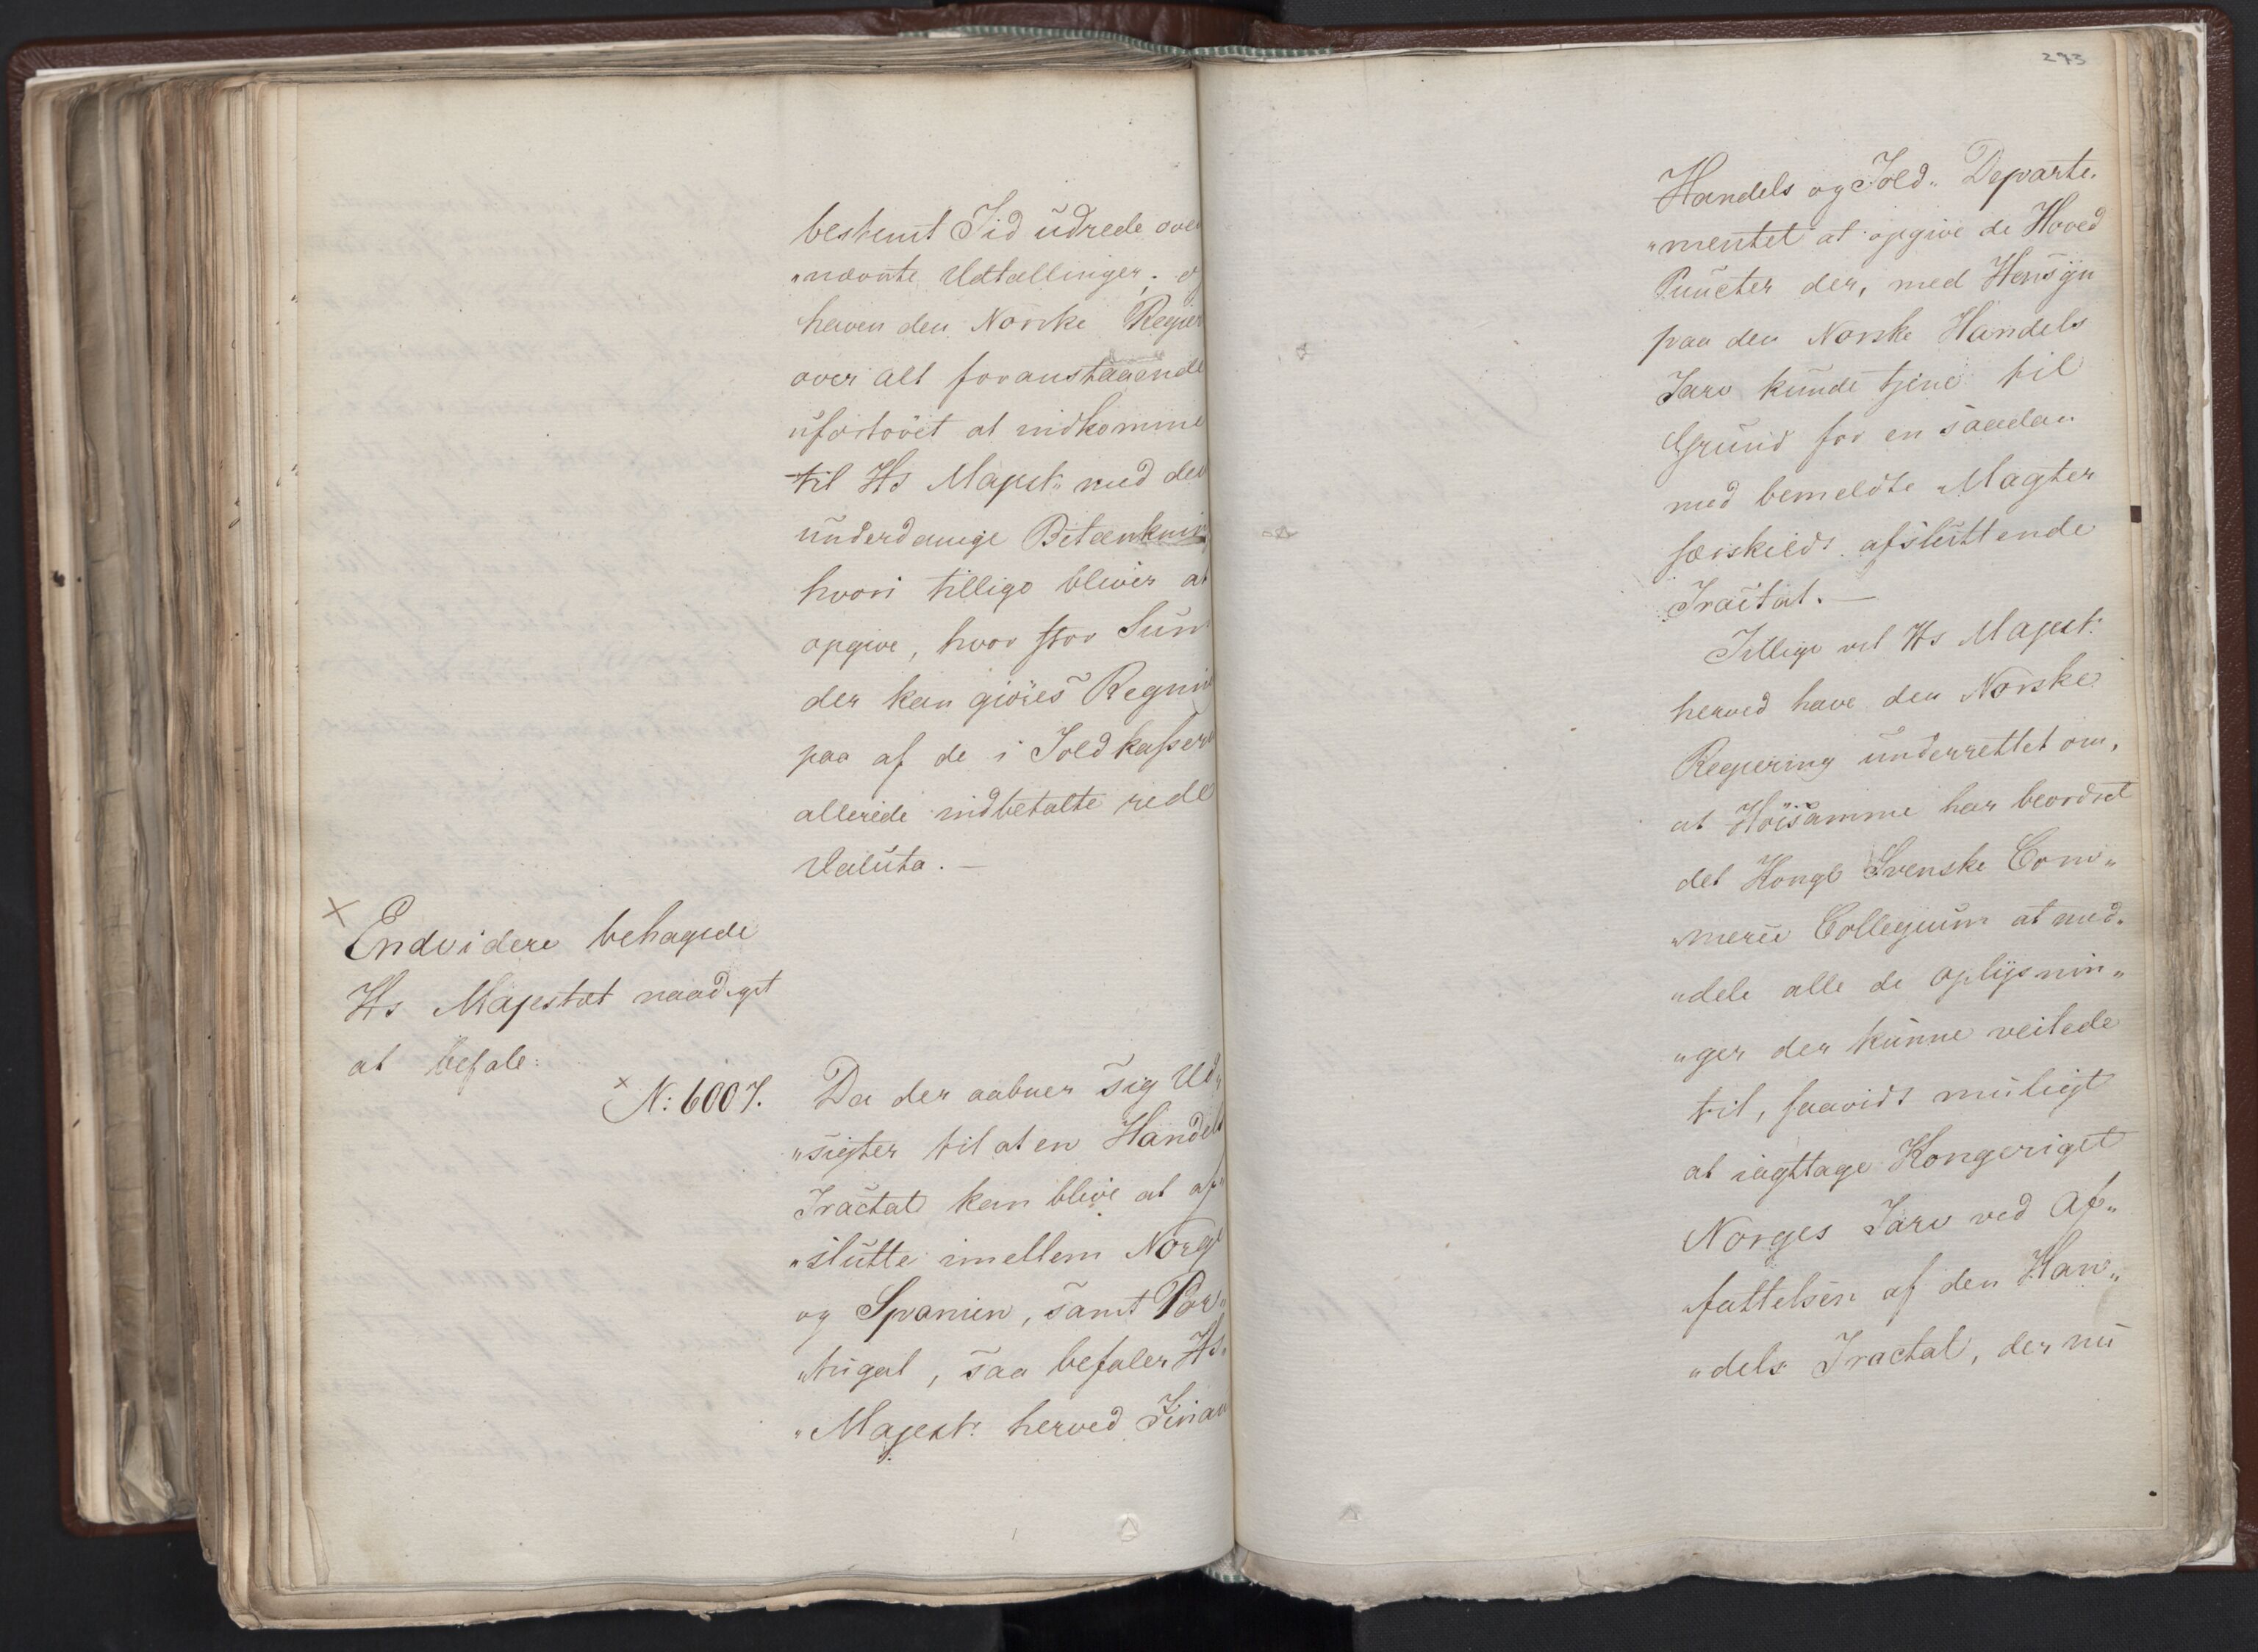 bestemt Tid udrede oven
"nævnte Udtællinger; og
haver den Norske Regjer
over alt foranstaaende
ufortövet at indkomme
til Hs Majest: med den
underdanige Betænkning
hvori tillige bliver at
opgive, hvor stor Sum
der kan giöres Regning
paa af de i Toldkasserne
allerede indbetalte rede
Valuta. —
× Endvidere behagede
Hs Majestæt naadigst
at befale:
× N: 6007. Da der aabner sig Ud"
"sigter til at en Handels
Tractat kan blive at af"
"slutte imellem Norge
og Spanien, samt Por"
"tugal, saa befaler Hs
"Majest: herved Finan
293
Handels og Told" Departe"
"mentet at opgive de Hoved
Puncter der, med Hensyn
paa den Norske Handels
Tarv kunde tjene til
Grund for en saadan
med bemeldte Magter
særskildt afsluttende
Tractat. —
Tillige vil Hs Majest:
herved have den Norske
Regjering underrettet om,
at Höisamme har beordret
det Kongl Svenske Com"
"merce Collegium at med"
"dele alle de oplysnin"
"ger der kunne veilede
til, saavidt muligt
at iagttage Kongeriget
Norges Tarv ved Af"
"fattelsen af den Han"
"dels Tractat, der nu